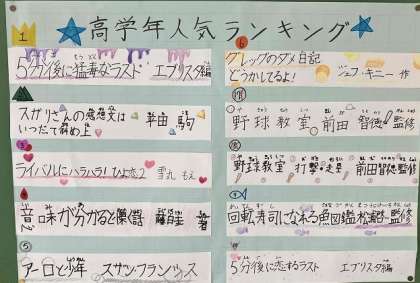 高学年人気ランキング
1
5分後に猛毒なラスト エブリスタ編
スガリさんの感想文は
いつだって斜め上 平田 駒
3
ライバルにハラハラ!ひよ恋2 雪丸 もえ
意味が分かると
⑤
アーロと少年 スザン・フランシス
6
グレッグのダメ日記
どうかしてるよ! ジェフ・キニー 作
野球教室 前田智徳監修
野球教室 打撃・走塁 前田智徳監修
回転寿司になれる魚図鑑 松浦啓一監修
5分後に恋するラスト エブリスタ編